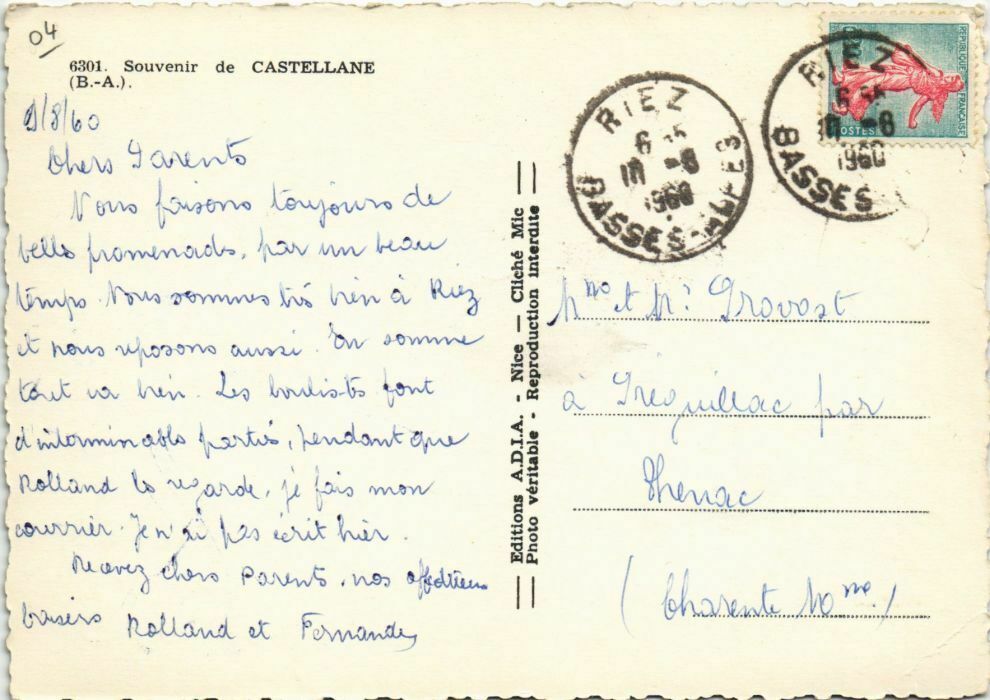 04
6301. Souvenir de CASTELLANE
(B.-A.).
9/8/60
Chers Parents
Nous faisons toujours de
belles promenades, par un beau
temps. Nous sommes très bien à Riez
et nous reposons aussi. En somme
tout va bien. Les boulistes font
d'interminables parties, pendant que
Rolland les regarde, je fais mon
courrier. Je n'ai pas écrit hier.
Recevez chers Parents, nos affectueux
baisers Rolland et Fernande
Editions A.D.I.A. - Nice — Cliché Mic
Photo véritable - Reproduction interdite
RIEZ
6
-8
1960
BASSES-ALPES
RIEZ
6
-8
1960
BASSES
REPUBLIQUE FRANÇAISE
POSTES
Mme et Mr Provost
à Préguillac par
Thenac
(Charente Mme)